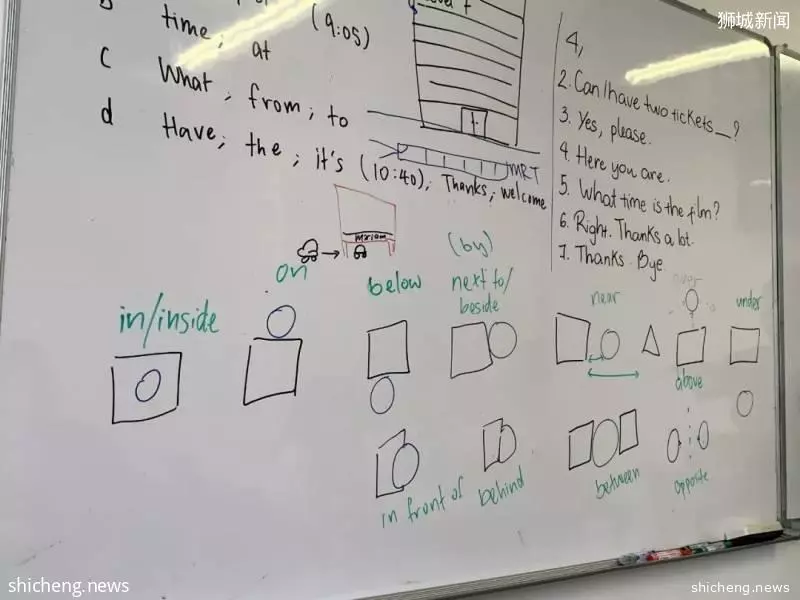 time, at (9:05)
c What; from; to
d Have; the; it's (10:40), Thanks, welcome
t
MRT
4,
2. Can I have two tickets __?
3. Yes, please.
4. Here you are.
5. What time is the film?
6. Right. Thanks a lot.
7. Thanks. Bye.
in/inside
on
below
(by)
next to/
beside
near
above
under
in front of
behind
between
opposite
狮城新闻
shicheng.news
shicheng.news